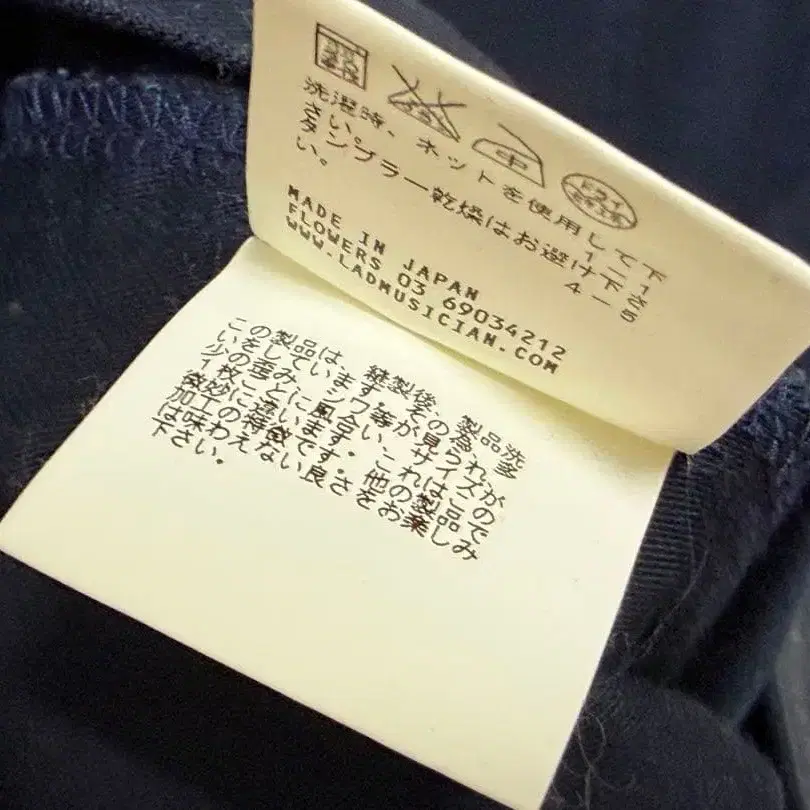 中
洗濯時、ネットを使用して下
さい。 1-1
タンブラー乾燥はお避け下さ
い。 4-5
MADE IN JAPAN
FLOWERS 03 69034212
WWW.LADMUSICIAN.COM
この製品は、縫製後、製品洗
いをしています。その為、多
少の歪み、シワ等が見られ、
1枚ごとに風合い、サイズが
微妙に違います。これはこの
加工の特徴です。他の製品で
は味わえない良さをお楽しみ
下さい。